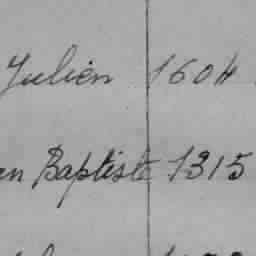 Julien 1604
an Baptiste 1315